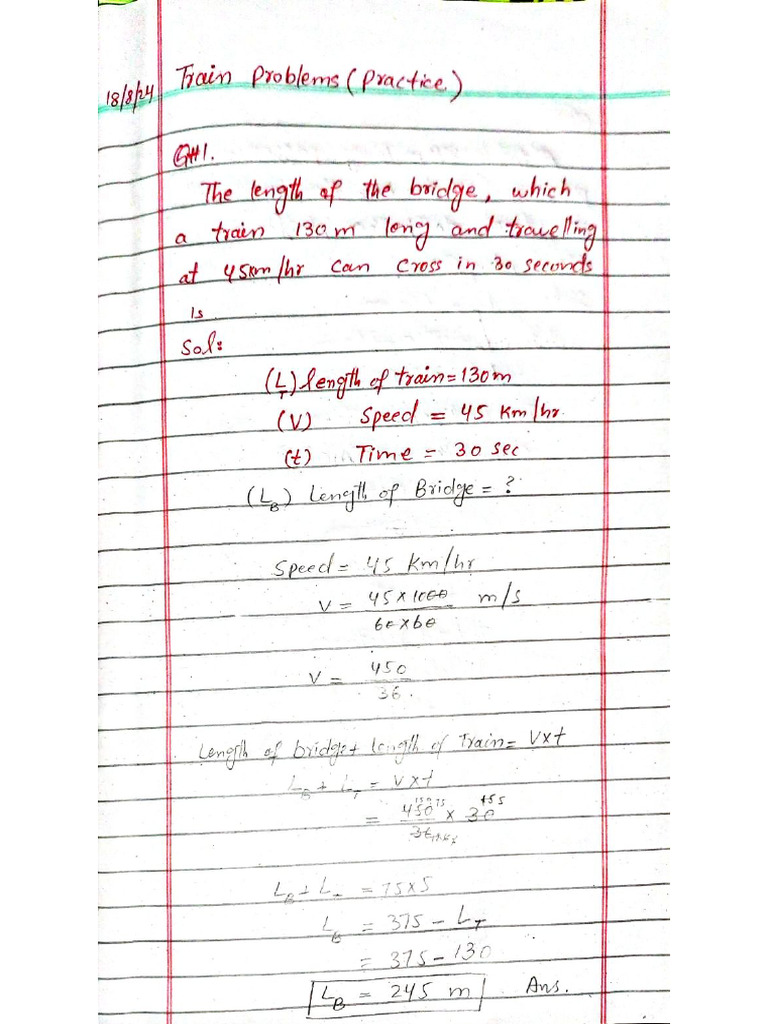 18/8/24 Train Problems (Practice)
Q#1.
The length of the bridge, which
a train 130 m long and travelling
at 45km/hr can cross in 30 seconds
is
Sol:
(L_T) length of train = 130 m
(V) Speed = 45 Km/hr
(t) Time = 30 sec
(L_B) Length of Bridge = ?
Speed = 45 Km/hr
V = 45 x 1000 m/s
60 x 60
V = 450
36.
Length of bridge + length of Train = Vxt
L_B + L_T = Vxt
= 450 x 30
36
L_B + L_T = 75x5
L_B = 375 - L_T
= 375 - 130
L_B = 245 m Ans.